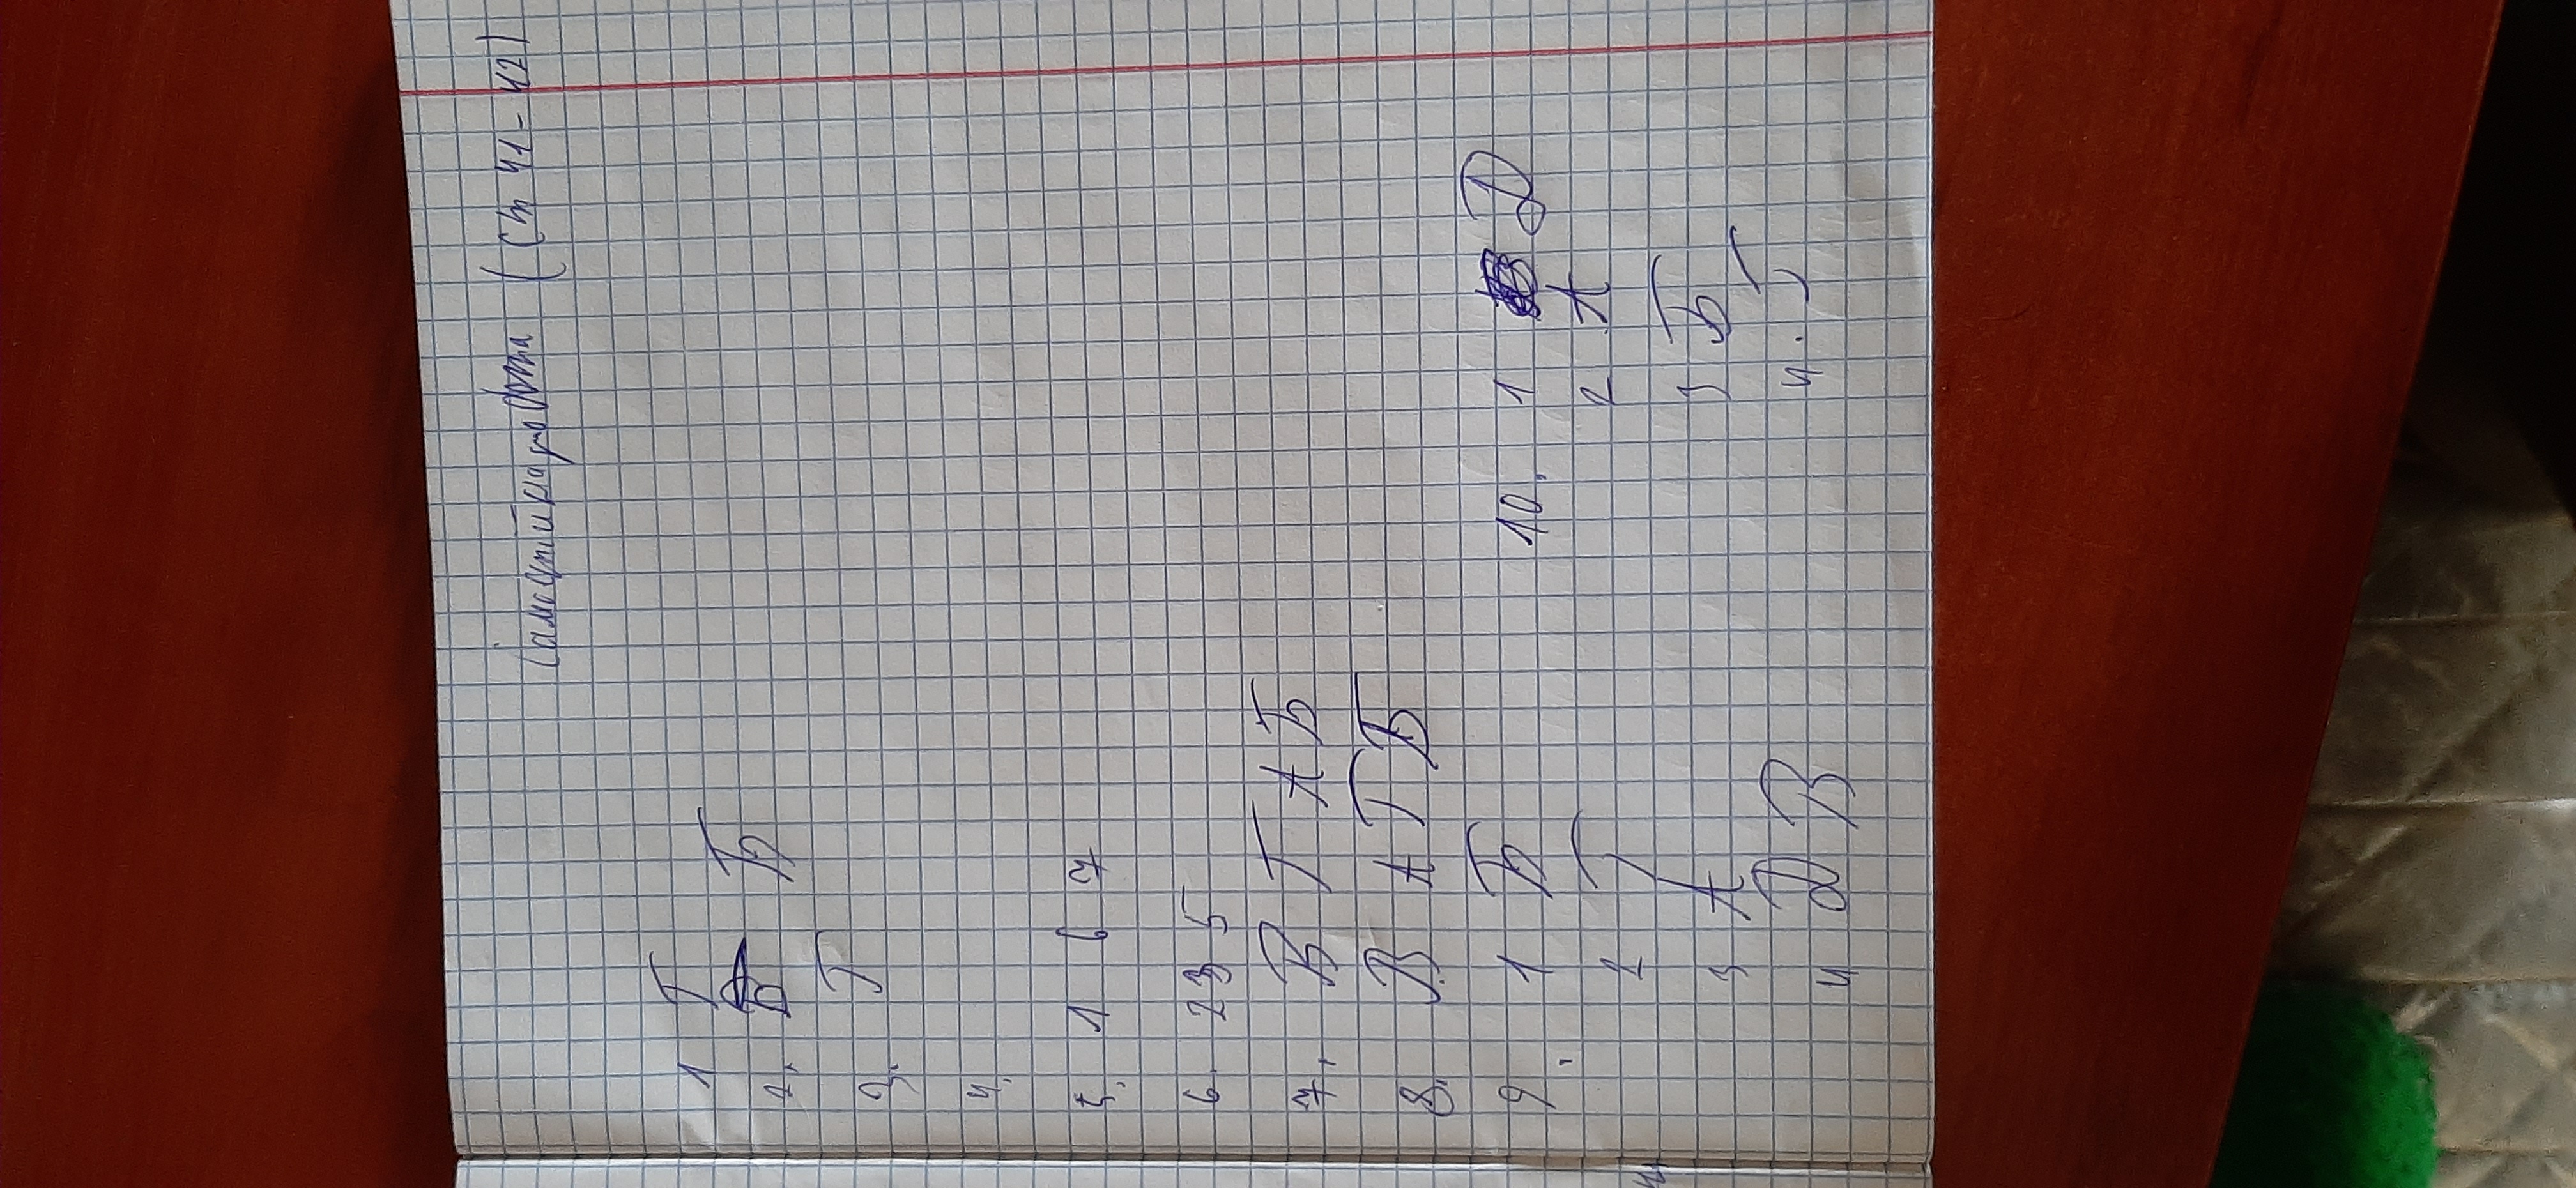 Самостійна робота (Ст 41-42)
1 Г
2. Б Б
3. Г
4.
5. 1 6 7
6. 2 3 5
7. В Г А Б
8. В А Г Б
9. 1 Б
2 Г
3 А
4 Д В
10. 1 Д
2 А
3 Б
4. Г